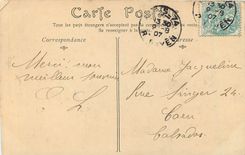 Carte Postale
Tous les pays étrangers n'acceptent pas la correspondance
Se renseigner à la
Correspondance
Adresse
Merci, mon
meilleur souvenir
Madame Jacqueline
Rue Singer 24
Caen
Calvados